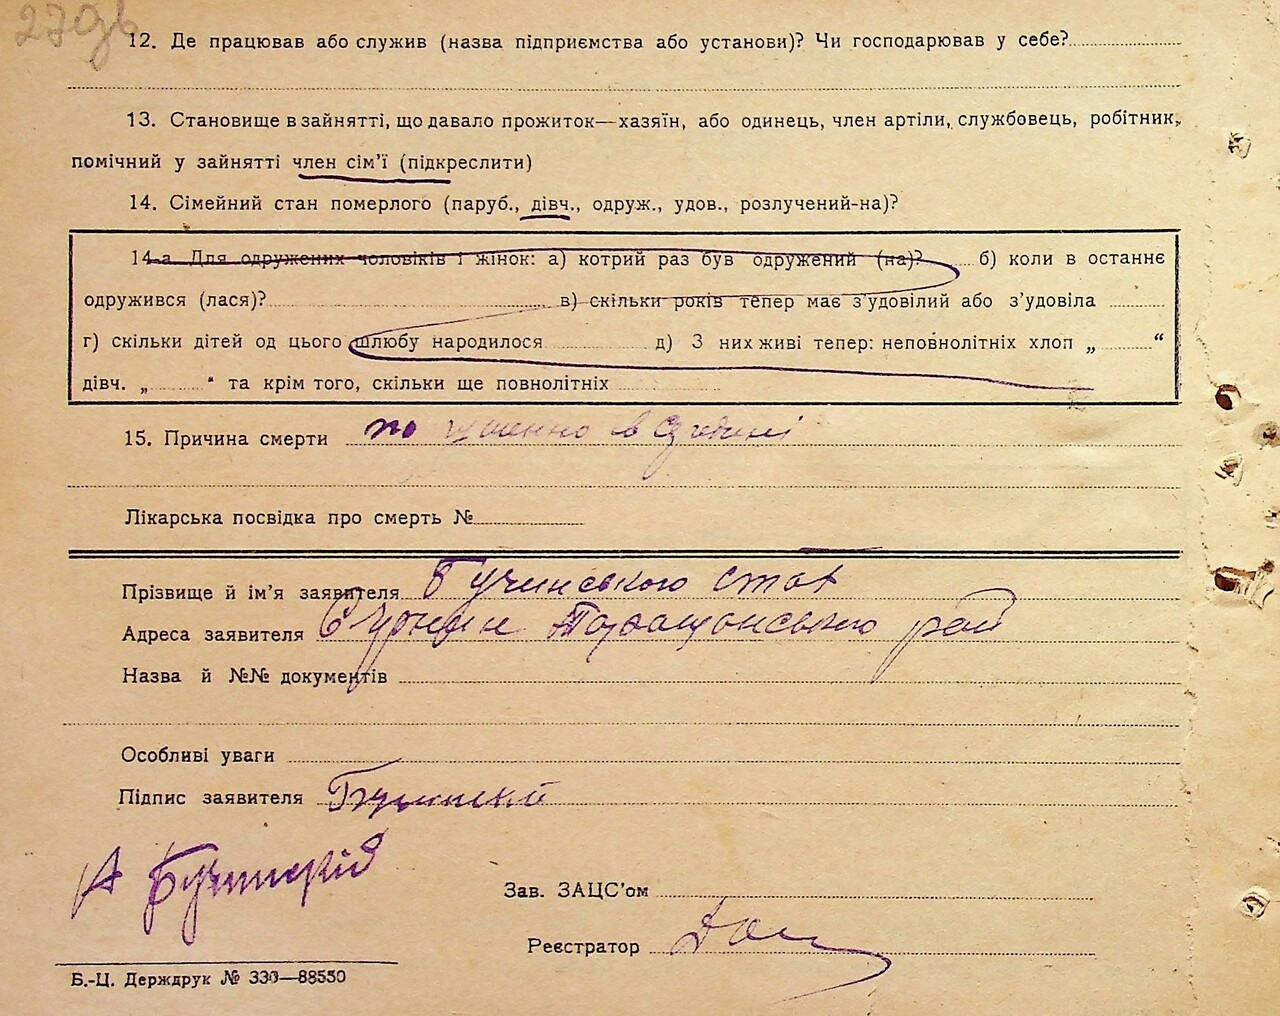 27
12. Де працював або служив (назва підприємства або установи)? Чи господарював у себе?
13. Становище в зайнятті, що давало прожиток—хазяїн, або одинець, член артіли, службовець, робітник,
помічний у зайнятті член сім'ї (підкреслити)
14. Сімейний стан померлого (паруб., дівч., одруж., удов., розлучений-на)?
14-а Для одружених чоловіків і жінок: а) котрий раз був одружений (на)? б) коли в останнє
одружився (лася)? в) скільки років тепер має з'удовілий або з'удовіла
г) скільки дітей од цього шлюбу народилося д) З них живі тепер: неповнолітніх хлоп „ “
дівч. „ “ та крім того, скільки ще повнолітніх
15. Причина смерти по
Лікарська посвідка про смерть №
Прізвище й ім'я заявителя Бучинського
Адреса заявителя Таращанського рай
Назва й №№ документів
Особливі уваги
Підпис заявителя
А Бучинский
Зав. ЗАЦС'ом
Реєстратор
Б.-Ц. Держдрук № 330—88550